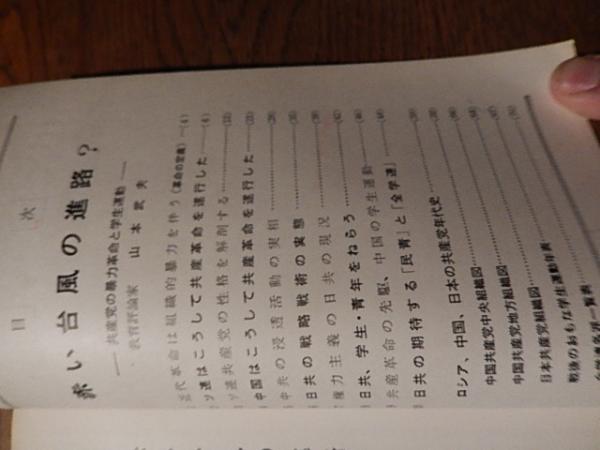 目次
赤い台風の進路?
――共産党の暴力革命と学生運動――
共育評論家 山本武夫
近代革命は組織的暴力を伴う(革命の定義)…(4)
ソ連はこうして共産革命を遂行した……(6)
ソ連共産党の性格を解剖する
中国はこうして共産革命を遂行した
中共の浸透活動の実相
日共の戦略戦術の実態
権力主義の日共の現況
日共、学生・青年をねらう
共産革命の先駆、中国の学生運動
日共の期待する「民青」と「全学連」
ロシア、中国、日本の共産党年代史
中国共産党中央組織図
中国共産党地方組織図
日本共産党組織図
戦後のおもな学生運動年表
全学連各派一覧表